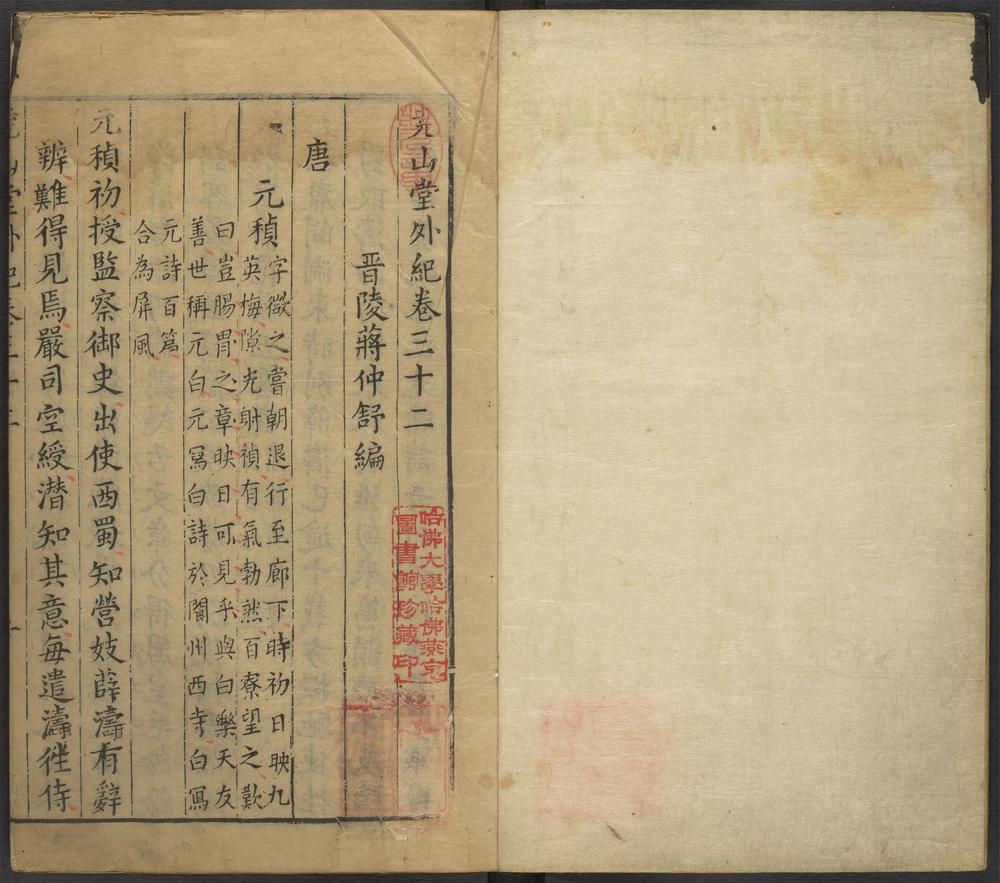 堯山堂外紀卷三十二
晉陵蔣仲舒編
唐
元稹
字微之嘗朝退行至廊下時初日映九
英梅隙光射稹有氣勃然百寮望之歎
曰豈腸胃之章映日可見乎與白樂天友
善世稱元白元寫白詩於閬州西寺白寫
元詩百篇
合為屏風
元稹初授監察御史出使西蜀知營妓薛濤有辭
辨難得見焉嚴司空綬潛知其意每遣濤往侍
哈佛大學哈佛燕京
圖書館珍藏印